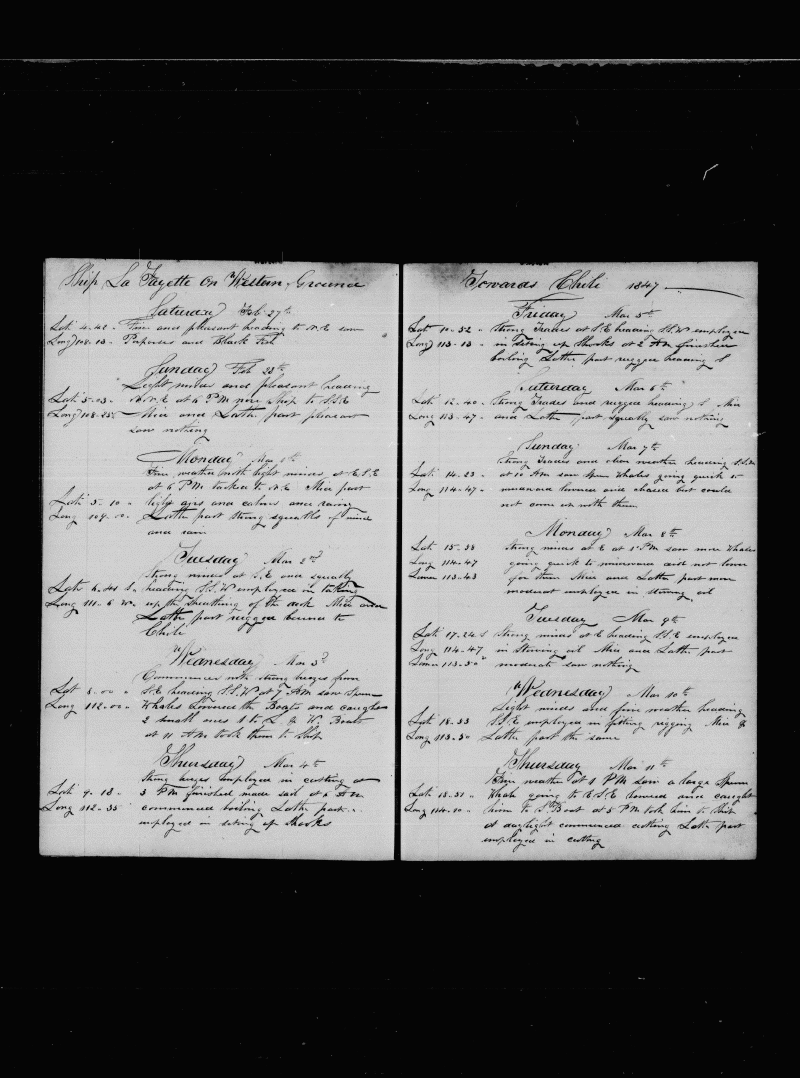 Ship La Fayette On Western Ground
Saturday Feb 27th
Lat 4-42 Fine and pleasant heading to N.E saw
Long 108-13 Porpoises and Black Fish
Sunday Feb 28th
Light winds and pleasant heading
Lat 5-03 N.N.E at 6 P.M wore Ship to S.S.E
Long 108-25 Mid and Latter part pleasant
saw nothing
Monday Mar 1st
Fine weather with light winds at E.S.E
at 6 P.M. tacked to N.E Mid part
Lat 5-10 light airs and calms and rainy
Long 109-00 Latter part strong squalls of wind
and rain
Tuesday Mar 2d
Strong winds at S.E and squally
Lat 6-44 S heading S.S.W employed in taking
Long 111-6 W up the sheathing of the deck Mid and
Latter part rugged bound to
Chili
Wednesday Mar 3d
Commences with strong breezes from
Lat 8-00 S.E heading S.S.W at 7 A.M saw Sperm
Long 112-00 Whales Lowered the Boats and caught
2 small ones 1 to L & W Boats
at 11 A.M took them to Ship
Thursday Mar 4th
Strong breezes employed in cutting at
Lat 9-18 3 P.M finished made sail at 6 A.M
Long 112-35 commenced boiling Latter part
employed in setting up Shooks
Towards Chili 1847
Friday Mar 5th
Lat 10-52 Strong Trades at S.E heading S.S.W employed
Long 113-13 in setting up Shooks at 2 A.M finished
boiling Latter part rugged heading S
Saturday Mar 6th
Lat 12-40 Strong Trades and rugged heading S Mid
Long 113-47 and Latter part squally saw nothing
Sunday Mar 7th
Strong Trades and clear weather heading S.S.W
Lat 14-23 at 10 A.M saw Sperm Whales going quick to
Long 114-47 windward lowered and chased but could
not come up with them
Monday Mar 8th
Lat 15-38 Strong winds at E at 1 P.M saw more Whales
Long 114-47 going quick to windward did not lower
Lunar 113-43 for them Mid and Latter part more
moderate employed in stowing oil
Tuesday Mar 9th
Lat 17-24 S Strong winds at E heading S.S.E employed
Long 114-47 in Stowing oil Mid and Latter part
Lunar 113-50 moderate saw nothing
Wednesday Mar 10th
Light winds and fine weather heading
Lat 18-33 S.S.E employed in fitting rigging Mid &
Long 113-50 Latter part the same
Thursday Mar 11th
Fine weather at 1 P.M saw a large Sperm
Whale going to E.S.E lowered and caught
Long 114-10 him to S.Boat at 5 P.M took him to Ship
at daylight commenced cutting Latter part
employed in cutting